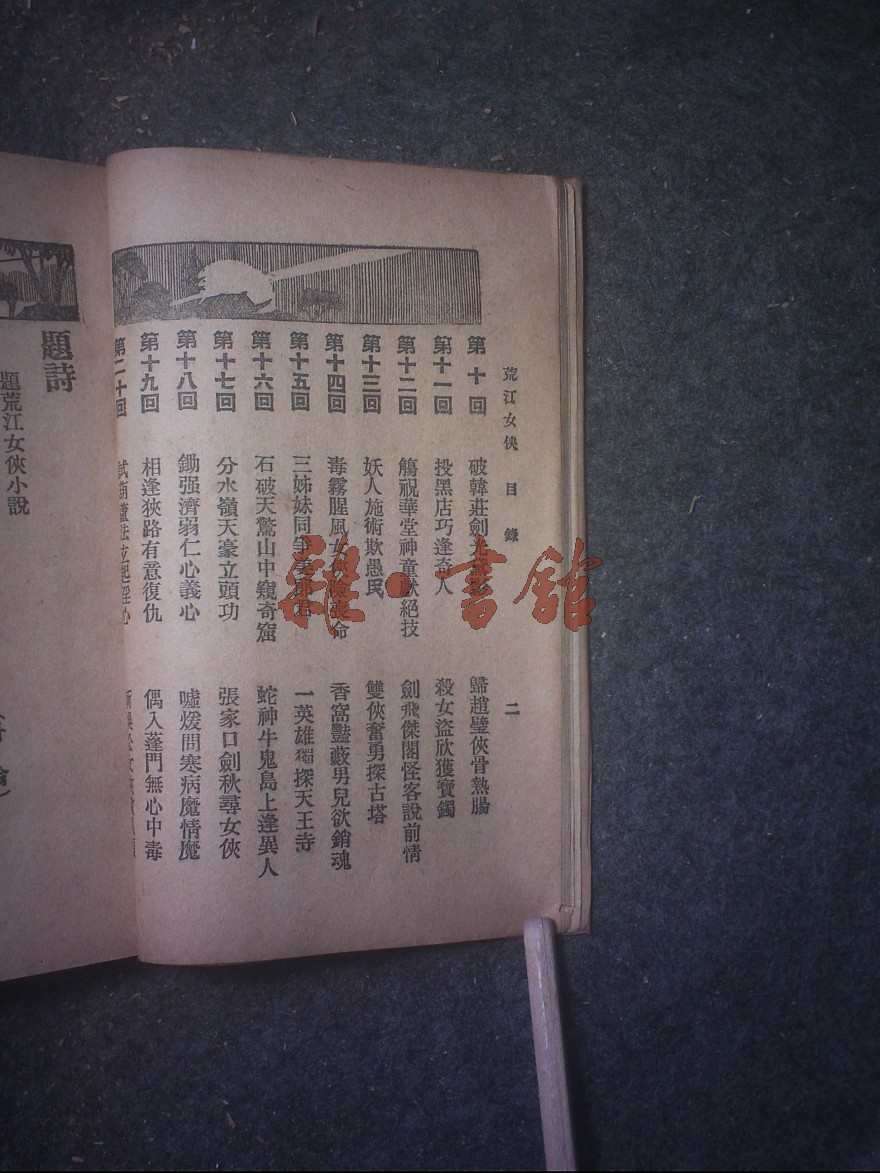 荒江女俠 目錄 二
第十回 破韓莊劍光 歸趙璧俠骨熱腸
第十一回 投黑店巧逢奇人 殺女盜欣獲寶鐲
第十二回 觴祝華堂神童獻絕技 劍飛傑閣怪客說前情
第十三回 妖人施術欺愚民 雙俠奮勇探古塔
第十四回 毒霧腥風女俠險喪命 香窩豔藪男兒欲銷魂
第十五回 三姊妹同爭 郎君 一英雄獨探天王寺
第十六回 石破天驚山中窺奇窟 蛇神牛鬼島上逢異人
第十七回 分水嶺天豪立頭功 張家口劍秋尋女俠
第十八回 鋤强濟弱仁心義心 噓煖問寒病魔情魔
第十九回 相逢狹路有意復仇 偶入蓬門無心中毒
第二十回 法玄起淫心
題詩
題荒江女俠小說
雜·書館